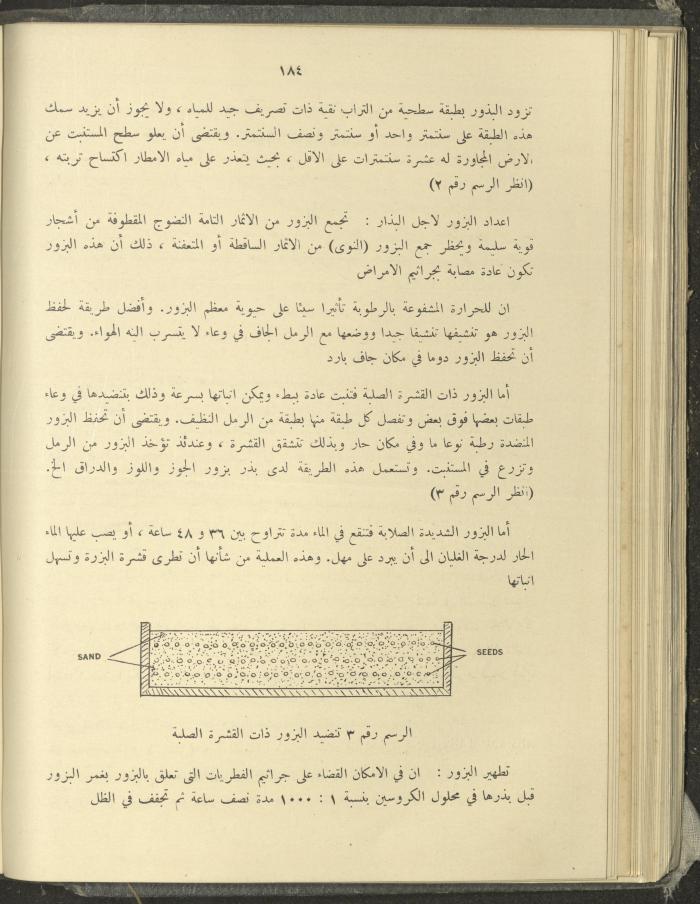 ١٨٤
تزود البذور بطبقة سطحية من التراب نقية ذات تصريف جيد للمياه ، ولا يجوز أن يزيد سمك
هذه الطبقة على سنتمتر واحد أو سنتمتر ونصف السنتمتر. ويقتضى أن يعلو سطح المستنبت عن
الارض المجاورة له عشرة سنتمترات على الاقل ، بحيث يتعذر على مياه الامطار اكتساح تربته ،
(انظر الرسم رقم ٢)
اعداد البزور لاجل البذار : تجمع البزور من الاثمار التامة النضوج المقطوفة من أشجار
قوية سليمة ويحظر جمع البزور (النوى) من الاثمار الساقطة أو المتعفنة ، ذلك أن هذه البزور
تكون عادة مصابة بجراثيم الامراض
ان للحرارة المشفوعة بالرطوبة تأثيرا سيئا على حيوية معظم البزور. وأفضل طريقة لحفظ
البزور هو تنشيفها تنشيفا جيدا ووضعها مع الرمل الجاف في وعاء لا يتسرب اليه الهواء. ويقتضى
أن تحفظ البزور دوما في مكان جاف بارد
أما البزور ذات القشرة الصلبة فتنبت عادة ببطء ويمكن انباتها بسرعة وذلك بتنضيدها في وعاء
طبقات بعضها فوق بعض وتفصل كل طبقة منها بطبقة من الرمل النظيف. ويقتضى أن تحفظ البزور
المنضدة رطبة نوعا ما وفي مكان حار وبذلك تتشقق القشرة ، وعندئذ تؤخذ البزور من الرمل
وتزرع في المستنبت. وتستعمل هذه الطريقة لدى بذر بزور الجوز واللوز والدراق الخ.
(انظر الرسم رقم ٣)
أما البزور الشديدة الصلابة فتنقع في الماء مدة تتراوح بين ٣٦ و ٤٨ ساعة ، أو يصب عليها الماء
الحار لدرجة الغليان الى أن يبرد على مهل. وهذه العملية من شأنها أن تطرى قشرة البزرة وتسهل
انباتها
SAND
SEEDS
الرسم رقم ٣ تنضيد البزور ذات القشرة الصلبة
تطهير البزور : ان في الامكان القضاء على جراثيم الفطريات التى تعلق بالبزور بغمر البزور
قبل بذرها في محلول الكروسين بنسبة ١ : ١٠٠٠ مدة نصف ساعة ثم تجفف في الظل